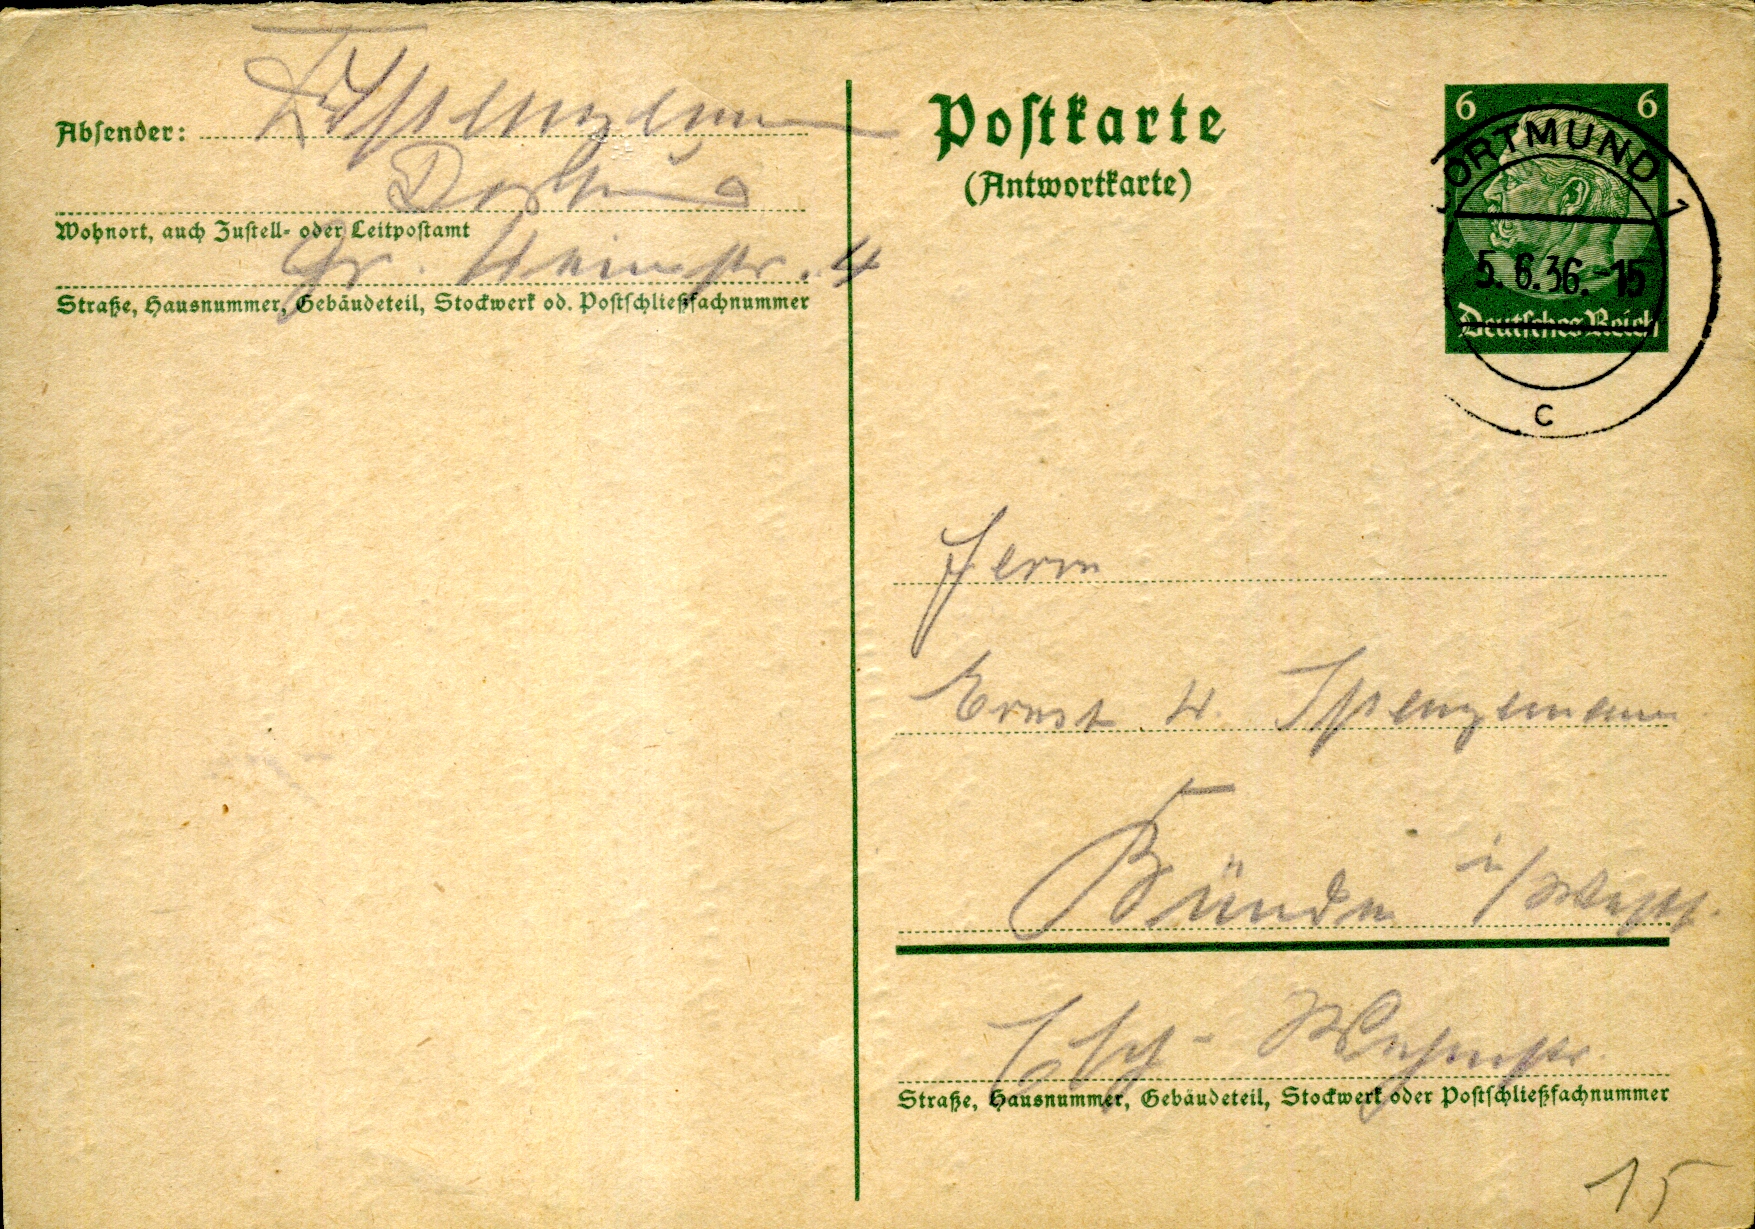 Absender: Spengemann
Dortmund
Wohnort, auch Zustell- oder Leitpostamt
Gr. Heimstr. 4
Straße, Hausnummer, Gebäudeteil, Stockwerk od. Postschließfachnummer
Postkarte
(Antwortkarte)
6 6
DORTMUND 1
5.6.36.-15
Deutsches Reich
c
Herrn
Ernst W. Spengemann
Bünde i/Westf.
Straße, Hausnummer, Gebäudeteil, Stockwerk oder Postschließfachnummer
15